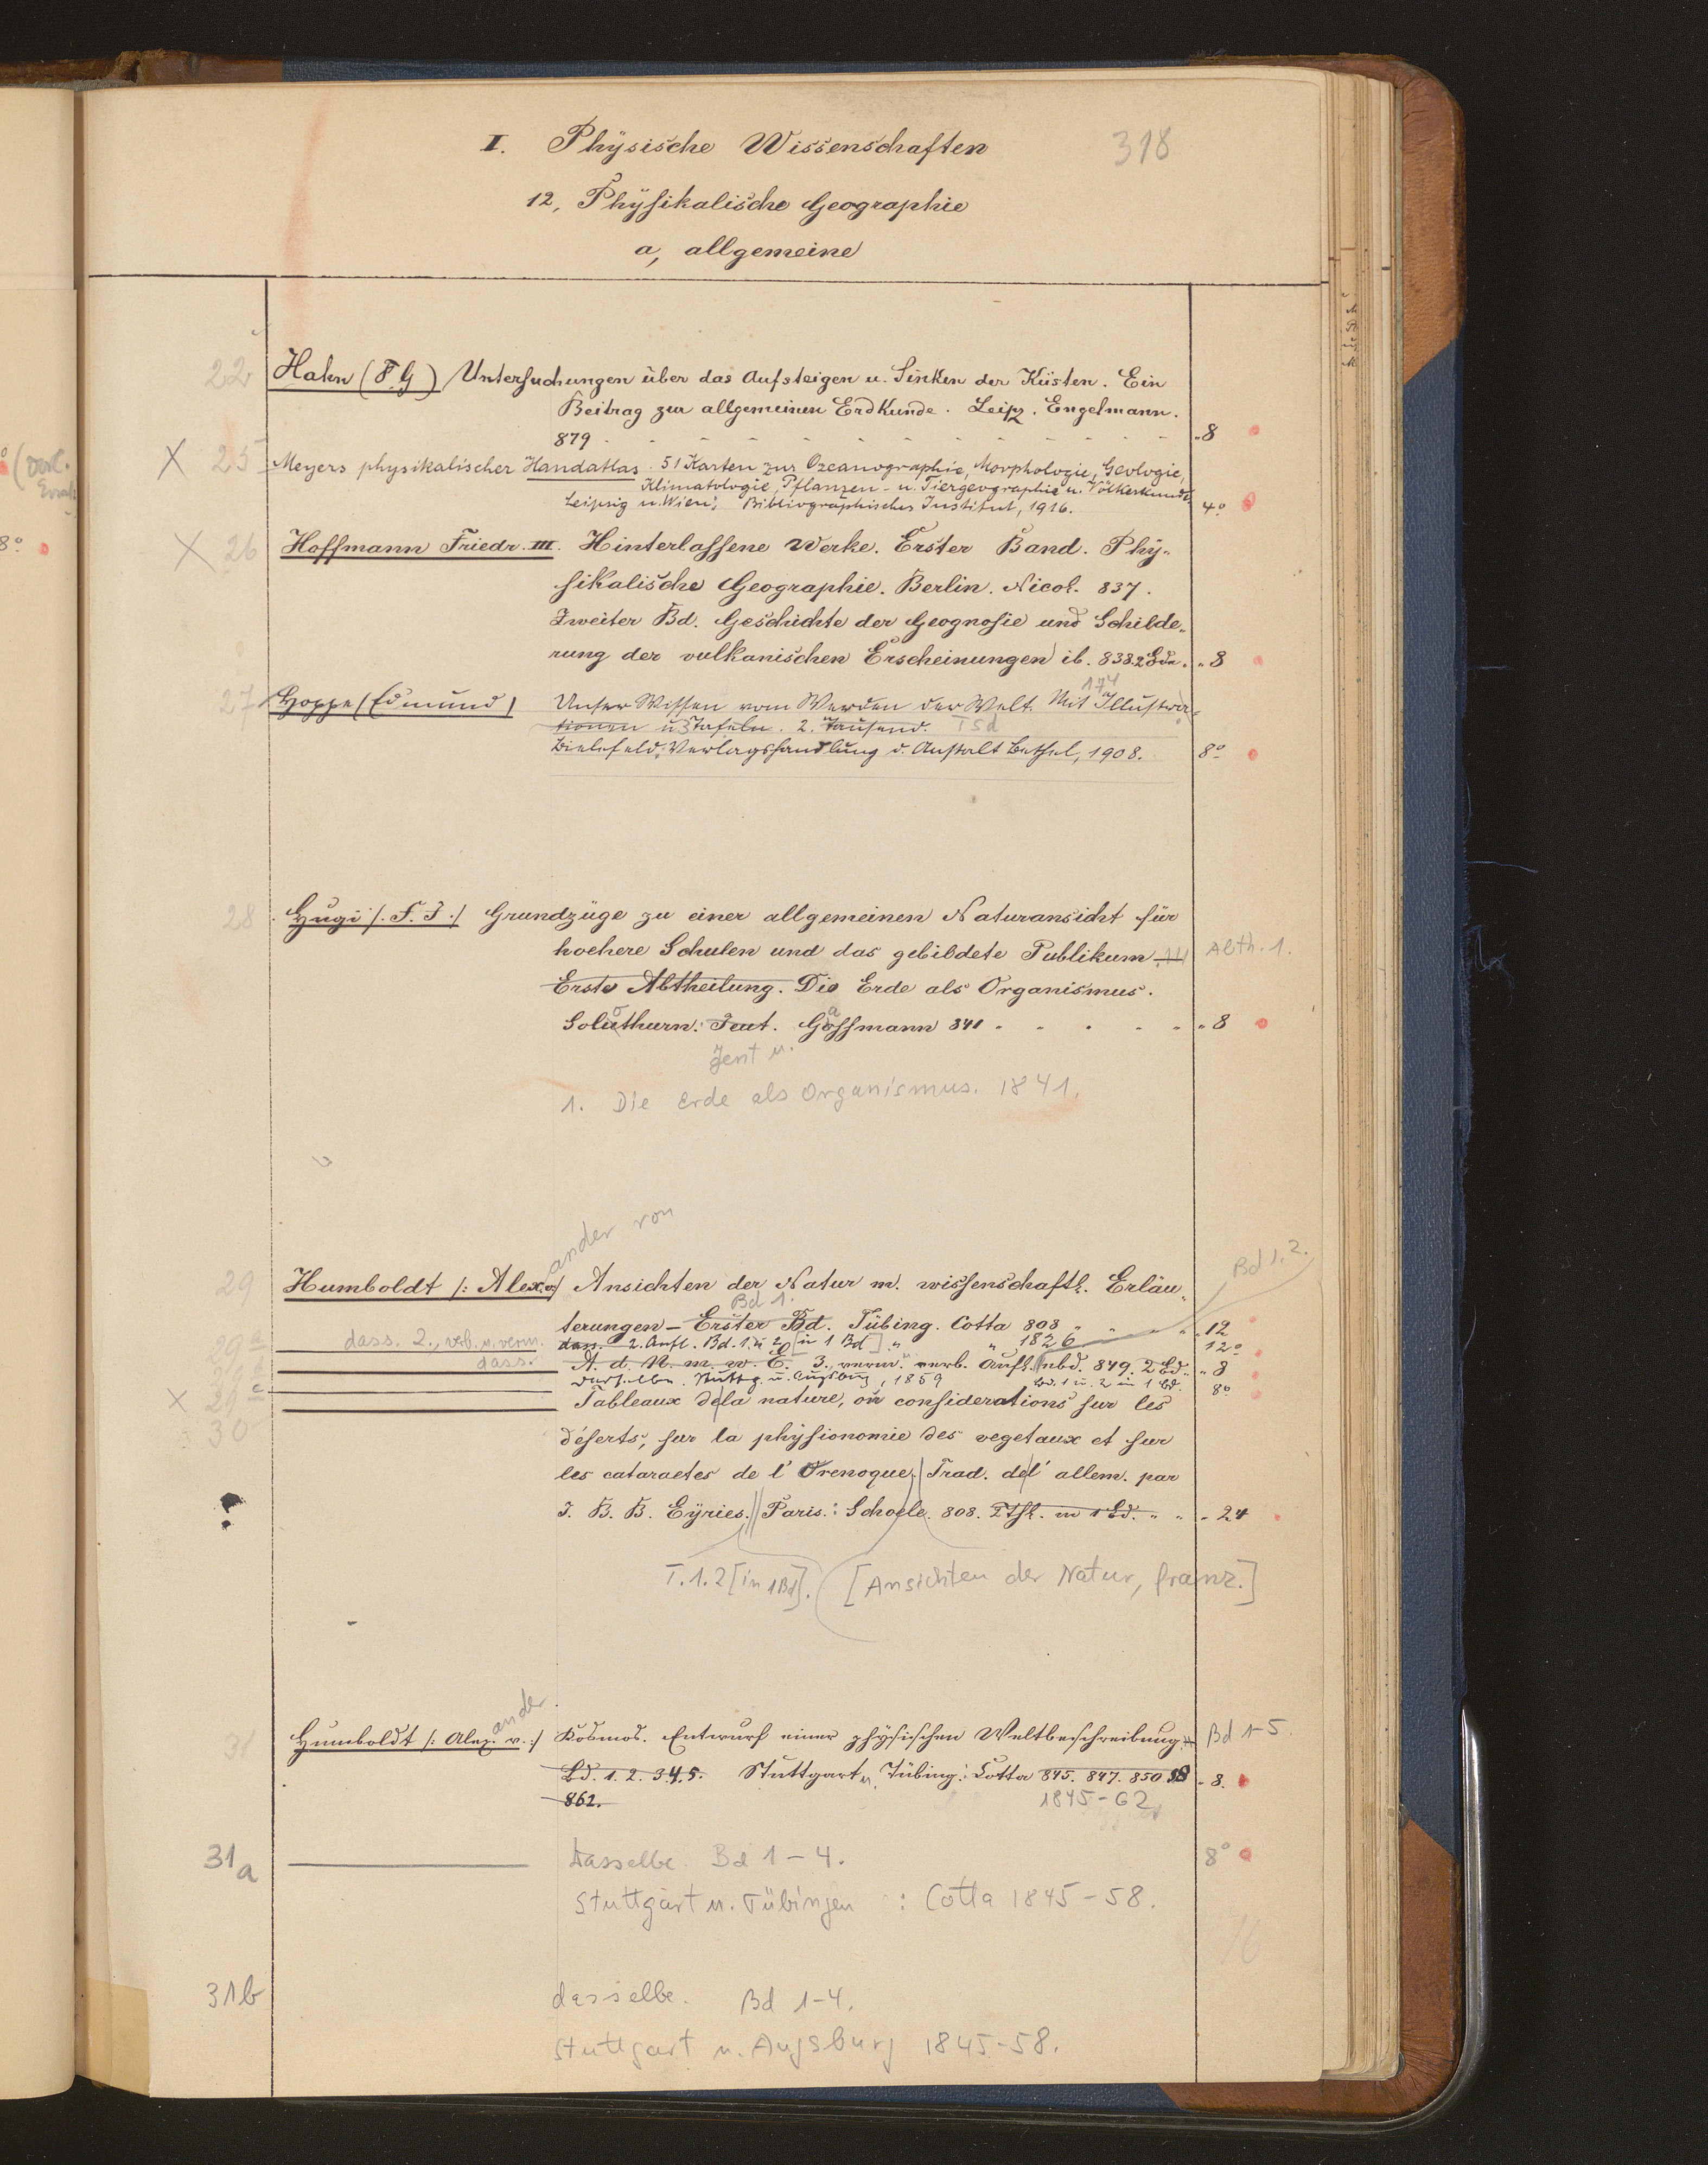 I. Physische Wissenschaften 318
12, Physikalische Geographie
a, allgemeine
22 Hahn (F. G) Untersuchungen über das Aufsteigen u. Sinken der Küsten. Ein
Beitrag zur allgemeinen Erdkunde. Leipz. Engelmann.
879 - - - - - - - - - - - - „8
X 25 Meyers physikalischer Handatlas. 51 Karten zur Ozeanographie, Morphologie, Geologie,
Klimatologie, Pflanzen- u. Tiergeographie u. Völkerkunde.
Leipzig u. Wien: Bibliographisches Institut, 1916. 4°
X 26 Hoffmann Friedr. III. Hinterlassene Werke. Erster Band. Phy-
sikalische Geographie. Berlin. Nicol. 837.
Zweiter Bd. Geschichte der Geognosie und Schilde-
rung der vulkanischen Erscheinungen ib. 838. 2 Bde. „8
174
27 Hoppe (Edmund) Unser Wissen vom Werden der Welt. Mit Illustra-
tionen u 3 Tafeln. 2. Tausend. Tsd
Bielefeld: Verlagshandlung d. Anstalt Bethel, 1908. 8°
28 Hugi /. F. J./ Grundzüge zu einer allgemeinen Naturansicht für
hoehere Schulen und das gebildete Publikum Abth. 1.
Erste Abtheilung. Die Erde als Organismus.
Soluthurn: Jent. Gassmann 841 „8
Jent u.
1. Die Erde als Organismus. 1841.
ander von
Bd 1. 2.
29 Humboldt /: Alex. v./ Ansichten der Natur m. wissenschaftl. Erläu-
Bd 1.
terungen – Erster Bd. Tübing. Cotta 808 „12
29a dass. 2., verb. u. verm. dass. 2. Aufl. Bd. 1. u 2 [in 1 Bd] „ „ 1826 12°
dass. A. d. N. m. w. E. 3. verm. u. verb. Aufl. ibd. 849. 2 Bd. „8
X 29c Dasselbe. Stuttg. u. Augsburg, 1859 Bd. 1 u. 2 in 1 Bd. 8°
30 Tableaux de la nature, ou considerations sur les
déserts, sur la physionomie des vegetaux et sur
les cataractes de l' Orenoque. Trad. de l' allem. par
J. B. B. Eyries. Paris.: Schoele. 808. 2 Thl. in 1 Bd. „ 24
T. 1. 2 [in 1 Bd]. [Ansichten der Natur, franz.]
ander
31 Humboldt /: Alex. v. :/ Kosmos. Entwurf einer physischen Weltbeschreibung. Bd 1-5.
Bd. 1. 2. 3. 4. 5. Stuttgart u. Tübing: Cotta 845. 847. 850 58 „8.
862. 1845-62
31a Dasselbe. Bd 1-4. 8°
Stuttgart u. Tübingen : Cotta 1845-58.
31b dasselbe. Bd 1-4.
Stuttgart u. Augsburg 1845-58.